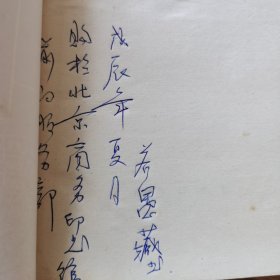 若愚藏书
戊辰年夏月
购于北京商务印书馆
前门服务部